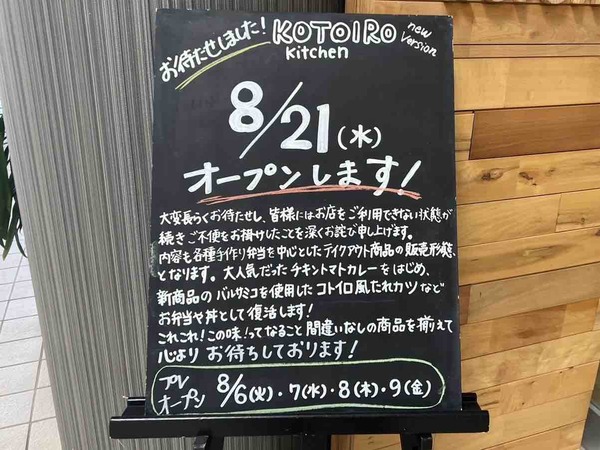 お待たせしました! KOTOIRO Kitchen new version
8/21(水)
オープンします!
大変長らくお待たせし、皆様にはお店をご利用できない状態が
続きご不便をお掛けしたことを深くお詫び申し上げます。
内容も各種手作り弁当を中心としたテイクアウト商品の販売形態
となります。大人気だったチキントマトカレーをはじめ、
新商品のバルサミコを使用したコトイロ風たれカツなど
お弁当や丼として復活します!
これこれ!この味!ってなること間違いなしの商品を揃えて
心よりお待ちしております!
プレオープン 8/6(火)・7(水)・8(木)・9(金)